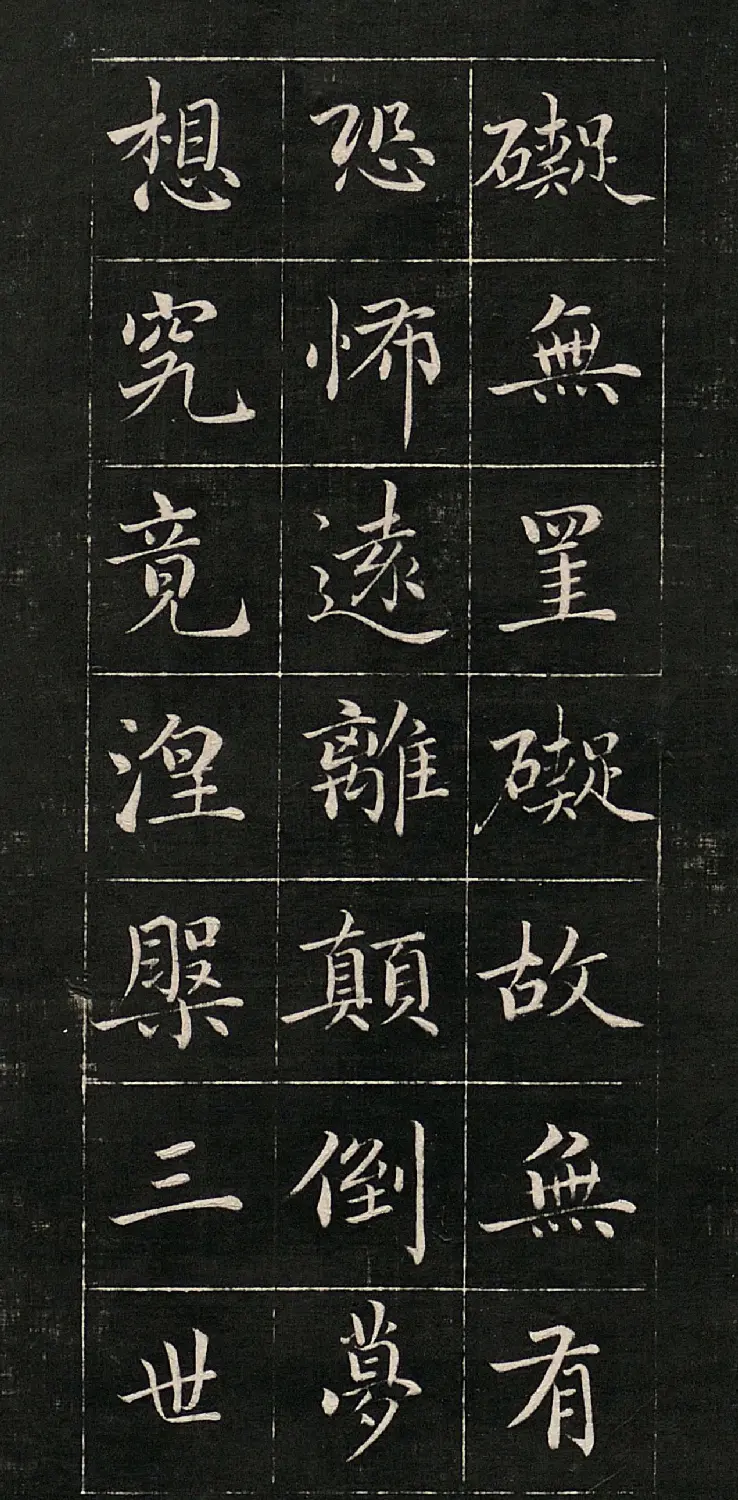 礙無罣礙故無有
恐怖遠離顛倒夢
想究竟涅槃三世